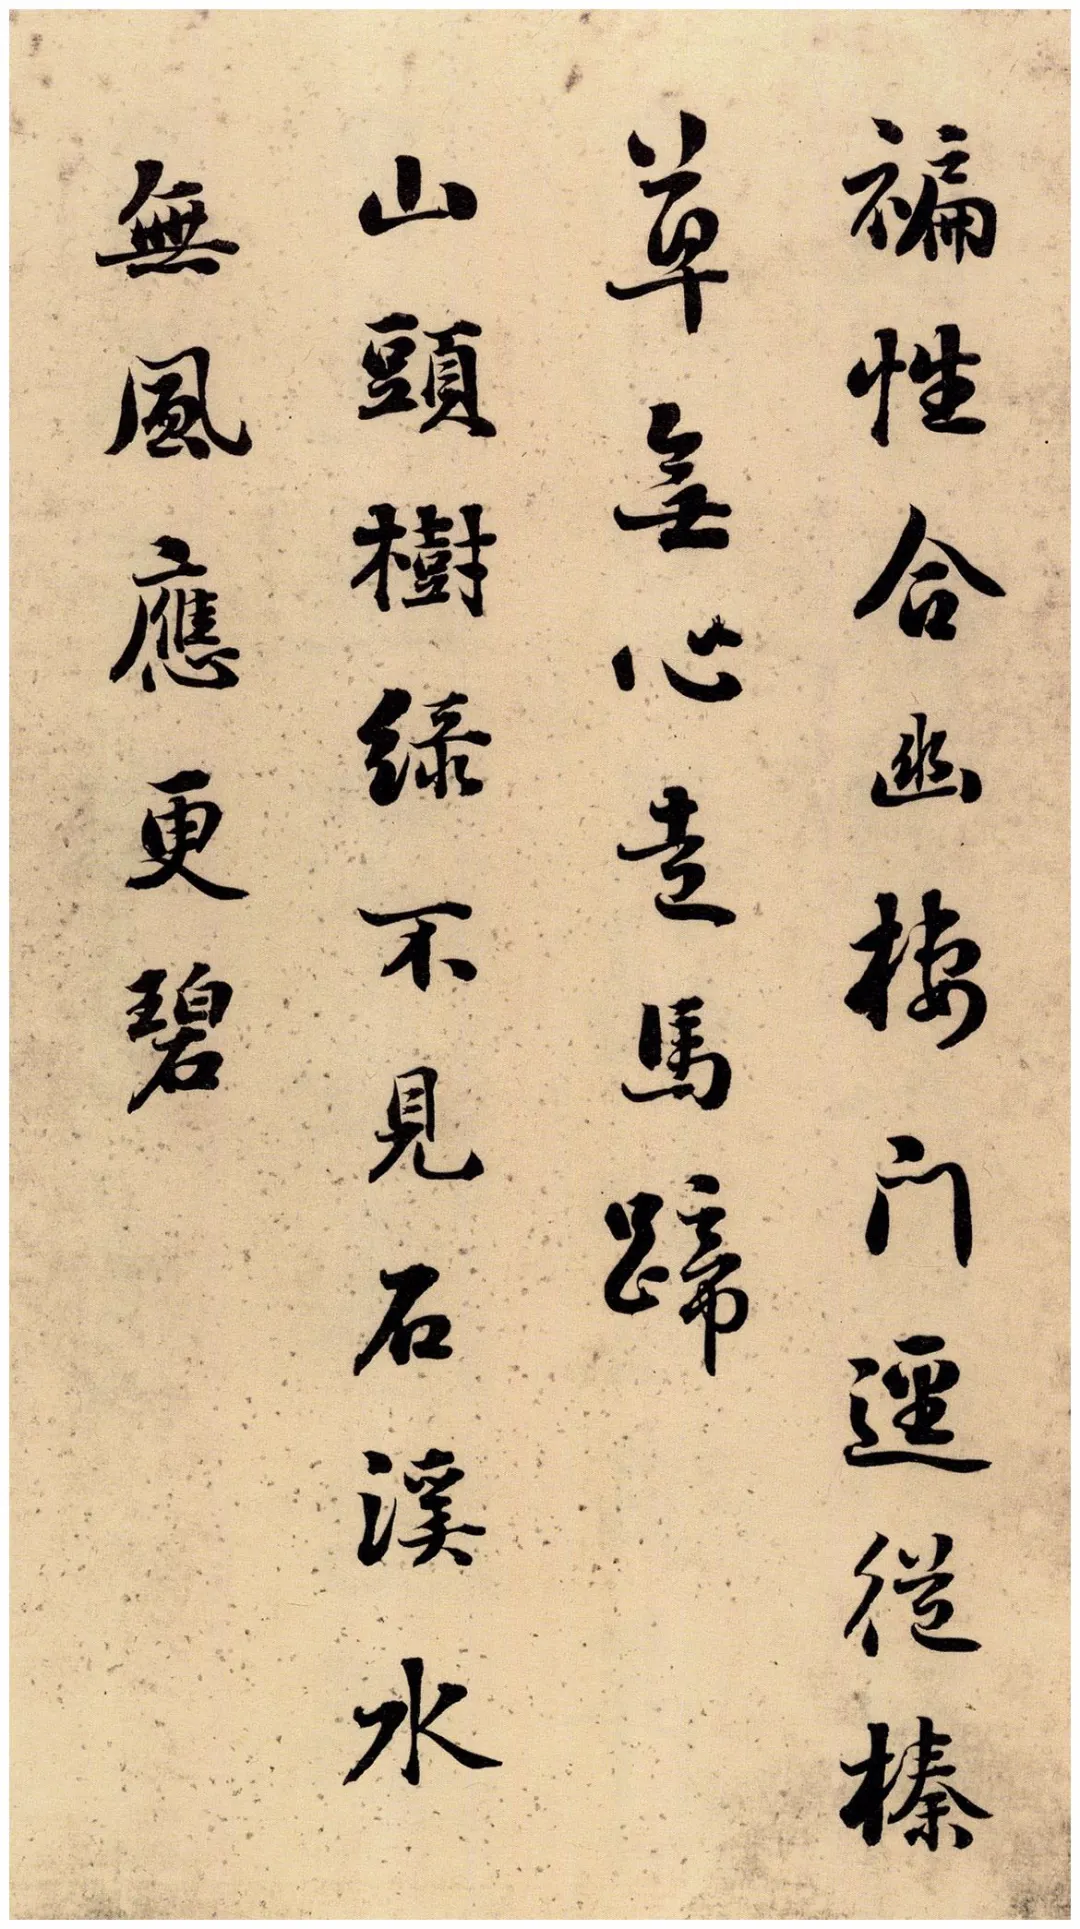 褊性合幽棲門逕從榛
草無心走馬蹄
山頭樹綠不見石溪水
無風應更碧